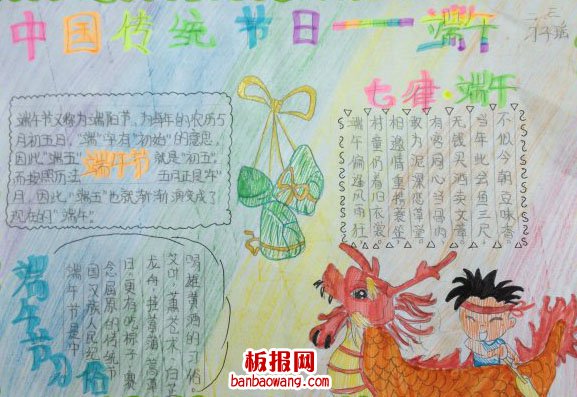 中国传统节日——端午
七律·端午
端午节又称为端阳节，为每年的农历5
月初五月，"端"字有"初始"的意思，
因此"端五"就是"初五"，
端午节
而按照历法五月正是"午"
月，因此"端五"也就渐渐演变成了
现在的"端午"。
端午偏逢风雨狂，
村童仍着旧衣裳，
相邀情重携蓑笠，
敢为泥深恋草堂，
有客同心当骨肉，
无钱买酒卖文章，
当年此会鱼三尺，
不似今朝豆味香。
端午节习俗
端午节是中
国汉族人民纪
念屈原的传统节
日，更有吃粽子，赛
龙舟，挂菖蒲、蒿草
艾叶，薰苍术、白芷
喝雄黄酒的习俗。
板报网
banbaowang.com